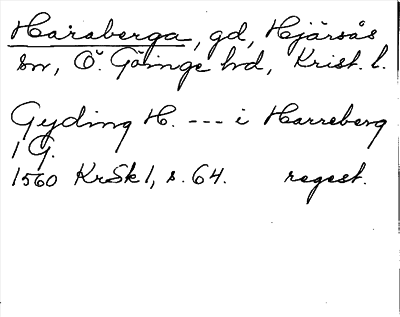 Haraberga, gd, Hjärsås
sn, Ö. Göinge hd, Krist. l.
Gyding H. --- i Harreberg
1 G.
1560 KrSk 1, s. 64. regest.